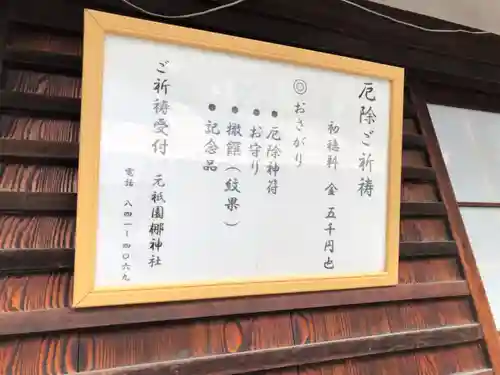 厄除ご祈祷
初穂料 金 五千円也
◎おさがり
●厄除神符
●お守り
●撤饌（紋菓）
●記念品
ご祈祷受付 元祇園梛神社
電話 八四一-四〇六九